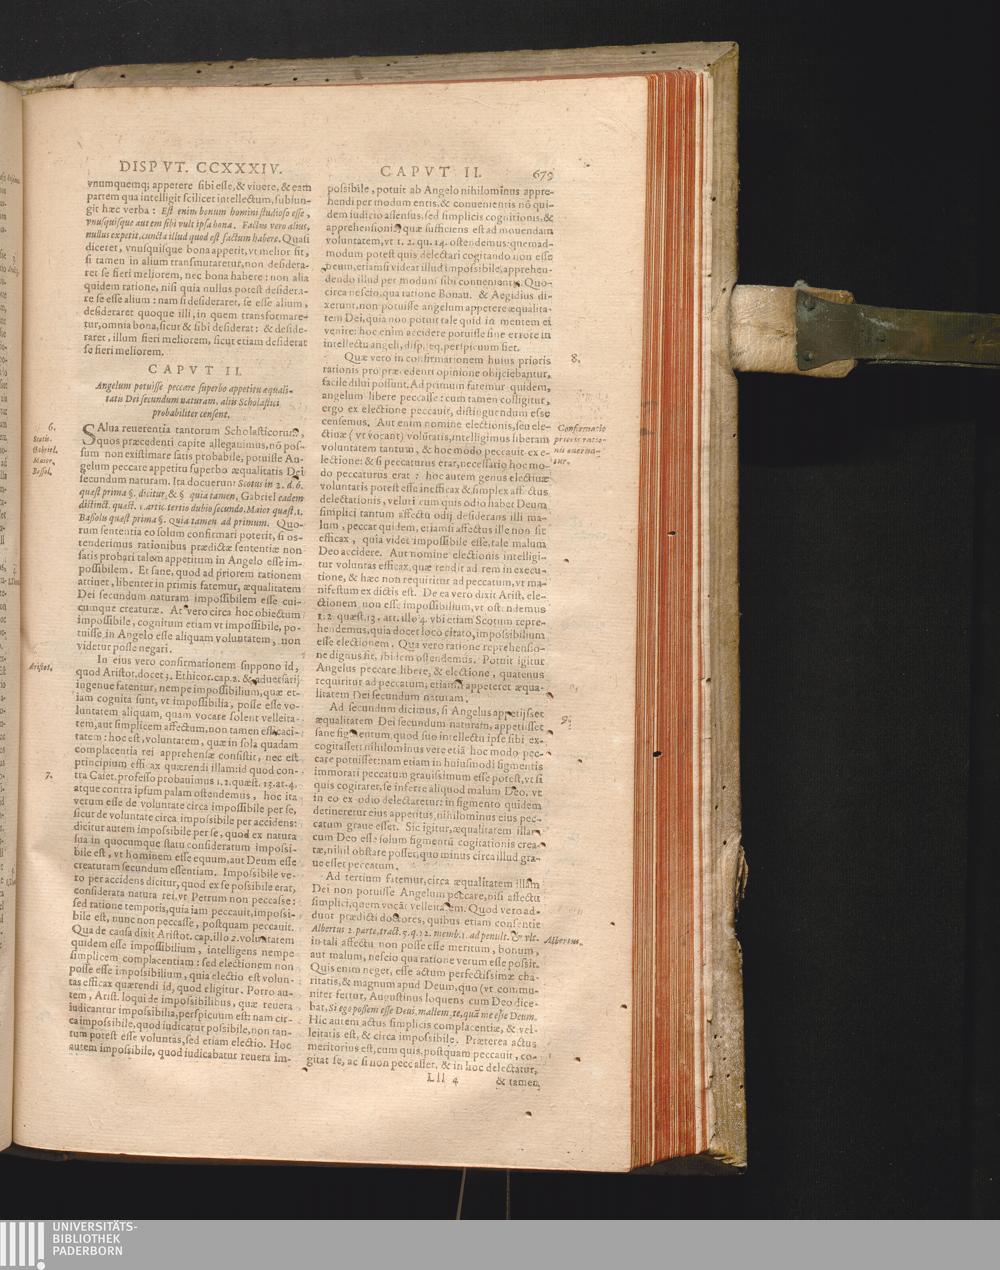 DISPVT. CCXXXIV.
vnumquemq; appetere sibi esse, & viuere, & eam
partem qua intelligit scilicet intellectum, subiun-
git hæc verba: Est enim bonum homini studioso esse,
vnusquisque autem sibi vult ipsa bona. Factus vero alius,
nullus expetit, cuncta illud quod est factum habere. Quasi
diceret, vnusquisque bona appetit, vt melior sit,
si tamen in alium transmutaretur, non desidera-
ret se fieri meliorem, nec bona habere: non alia
quidem ratione, nisi quia nullus potest desidera-
re se esse alium: nam si desideraret, se esse alium,
desideraret quoque illi, in quem transformare-
tur, omnia bona, sicut & sibi desiderat: & deside-
raret, illum fieri meliorem, sicut etiam desiderat
se fieri meliorem.
CAPVT II.
Angelum potuisse peccare superbo appetitu æquali-
tatis Dei secundum naturam, alii Scholastici
probabiliter censent.
6.
Scotus.
Gabriel.
Maior.
Bassol.
SAlua reuerentia tantorum Scholasticorum,
quos præcedenti capite allegauimus, nõ pos-
sum non existimare satis probabile, potuisse An-
gelum peccare appetitu superbo æqualitatis Dei
secundum naturam. Ita docuerunt Scotus in 2. d. 6.
quæst prima §. dicitur, & § quia tamen, Gabriel eadem
distinct. quæst. 1. artic. tertio dubio secundo. Maior quæst. 1.
Bassolus quæst prima §. Quia tamen ad primum. Quo-
rum sententia eo solum confirmari poterit, si os-
tenderimus rationibus prædictæ sententiæ non
satis probari talem appetitum in Angelo esse im-
possibilem. Et sane, quod ad priorem rationem
attinet, libenter in primis fatemur, æqualitatem
Dei secundum naturam impossibilem esse cui-
cumque creaturæ. At vero circa hoc obiectum
impossibile, cognitum etiam vt impossibile, po-
tuisse in Angelo esse aliquam voluntatem, non
videtur posse negari.
Aristot.
In eius vero confirmationem suppono id,
quod Aristot. docet 3. Ethicor. cap. 2. & aduersarij
ingenue fatentur, nempe impossibilium, quæ et-
iam cognita sunt, vt impossibilia, posse esse vo-
luntatem aliquam, quam vocare solent velleita-
tem, aut simplicem affectum, non tamen efficaci-
tatem: hoc est, voluntatem, quæ in sola quadam
complacentia rei apprehensæ consistit, nec est
principium efficax quærendi illam: id quod con-
7.
tra Caiet. professo probauimus 1. 2. quæst. 13. at. 4.
atque contra ipsum palam ostendemus, hoc ita
verum esse de voluntate circa impossibile per se,
sicut de voluntate circa impossibile per accidens:
dicitur autem impossibile per se, quod ex natura
sua in quocumque statu consideratum impossi-
bile est, vt hominem esse equum, aut Deum esse
creaturam secundum essentiam. Impossibile ve-
ro per accidens dicitur, quod ex se possibile erat,
considerata natura rei, vt Petrum non peccasse:
sed ratione temporis, quia iam peccauit, impossi-
bile est, nunc non peccasse, postquam peccauit.
Qua de causa dixit Aristot. cap. illo 2. voluntatem
quidem esse impossibilium, intelligens nempe
simplicem complacentiam: sed electionem non
posse esse impossibilium, quia electio est volun-
tas efficax quærendi id, quod eligitur. Porro au-
tem, Arist. loqui de impossibilibus, quæ reuera
iudicantur impossibilia, perspicuum est: nam cir-
ca impossibile, quod iudicatur possibile, non tan-
tum potest esse voluntas, sed etiam electio. Hoc
autem impossibile, quod iudicabatur reuera im-
CAPVT II. 679
possibile, potuit ab Angelo nihilominus appre-
hendi per modum entis, & conuenientis nõ qui-
dem iudicio assensus, sed simplicis cognitionis, &
apprehensionis quæ sufficiens est ad mouendam
voluntatem, vt 1. 2. qu. 14. ostendemus: quemad-
modum potest quis delectari cogitando non esse
Deum, etiamsi videat illud impossibile, apprehen-
dendo illud per modum sibi conuenientis. Quo-
circa nescio, qua ratione Bonau. & Aegidius di-
xerunt, non potuisse angelum appetere æqualita-
tem Dei, quia non potuit tale quid in mentem ei
venire: hoc enim accidere potuisse sine errore in
intellectu angeli, disp. seq. perspicuum fiet.
8.
Quæ vero in confirmationem huius prioris
rationis pro præcedenti opinione obijciebantur,
facile dilui possunt. Ad primum fatemur quidem,
angelum libere peccasse: cum tamen colligitur,
ergo ex electione peccauit, distinguendum esse
censemus. Aut enim nomine electionis, seu ele-
Confirmatio
prioris ratio-
nis euerta-
tur.
ctiuæ (vt vocant) volũtatis, intelligimus liberam
voluntatem tantum, & hoc modo peccauit ex e-
lectione: & si peccaturus erat, necessario hoc mo-
do peccaturus erat: hoc autem genus electiuæ
voluntatis potest esse inefficax & simplex affectus
delectationis, veluti cum quis odio habet Deum
simplici tantum affectu odij desiderans illi ma-
lum, peccat quidem, etiamsi affectus ille non sit
efficax, quia videt impossibile esse, tale malum
Deo accidere. Aut nomine electionis intelligi-
tur voluntas efficax, quæ tendit ad rem in execu-
tione, & hæc non requiritur ad peccatum, vt ma-
nifestum ex dictis est. De ea vero dixit Arist. ele-
ctionem non esse impossibilium, vt ostendemus
1. 2. quæst. 13. art. illo 4. vbi etiam Scotum repre-
hendemus, quia docet loco citato, impossibilium
esse electionem. Qua vero ratione reprehensio-
ne dignus sit, ibidem ostendemus. Potuit igitur
Angelus peccare libere, & electione, quatenus
requiritur ad peccatum, etiamsi appeteret æqua-
litatem Dei secundum naturam.
9.
Ad secundum dicimus, si Angelus appetijsset
æqualitatem Dei secundum naturam, appetiisset
sane figmentum, quod suo intellectu ipse sibi ex-
cogitasset: nihilominus vere etiã hoc modo pec-
care potuisset: nam etiam in huiusmodi figmentis
immorari peccatum grauissimum esse potest, vt si
quis cogitaret, se inferre aliquod malum Deo, vt
in eo ex odio delectaretur: in figmento quidem
detineretur eius appetitus, nihilominus eius pec-
catum graue esset. Sic igitur, æqualitatem illam
cum Deo esse solum figmentũ cogitationis crea-
tæ, nihil obstare posset, quo minus circa illud gra-
ue esset peccatum.
Ad tertium fatemur, circa æqualitatem illam
Dei non potuisse Angelum peccare, nisi affectu
simplici, quem vocãt velleitatem. Quod vero ad-
dunt prædicti doctores, quibus etiam consentit
Albertus 2. parte, tract. 5. q. 22. memb. 1. ad penult. & vlt.
Albertus.
in tali affectu non posse esse meritum, bonum,
aut malum, nescio qua ratione verum esse possit.
Quis enim neget, esse actum perfectissimæ cha-
ritatis, & magnum apud Deum, quo (vt commu-
niter fertur, Augustinus loquens cum Deo dice-
bat, Si ego possem esse Deus, mallem, te, quã me esse Deum.
Hic autem actus simplicis complacentiæ, & vel-
leitatis est, & circa impossibile. Præterea actus
meritorius est, cum quis, postquam peccauit, co-
gitat se, ac si non peccasset, & in hoc delectatur,
Lll 4 & tamen
UNIVERSITÄTS-
BIBLIOTHEK
PADERBORN